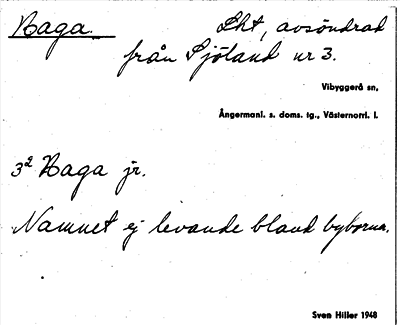 Baga. Lht, avsöndrad
från Sjöland nr 3.
Vibyggerå sn,
Ångermanl. s. doms. tg., Västernorrl. l.
3² Baga jr.
Namnet ej levande bland byborna.
Sven Hiller 1948